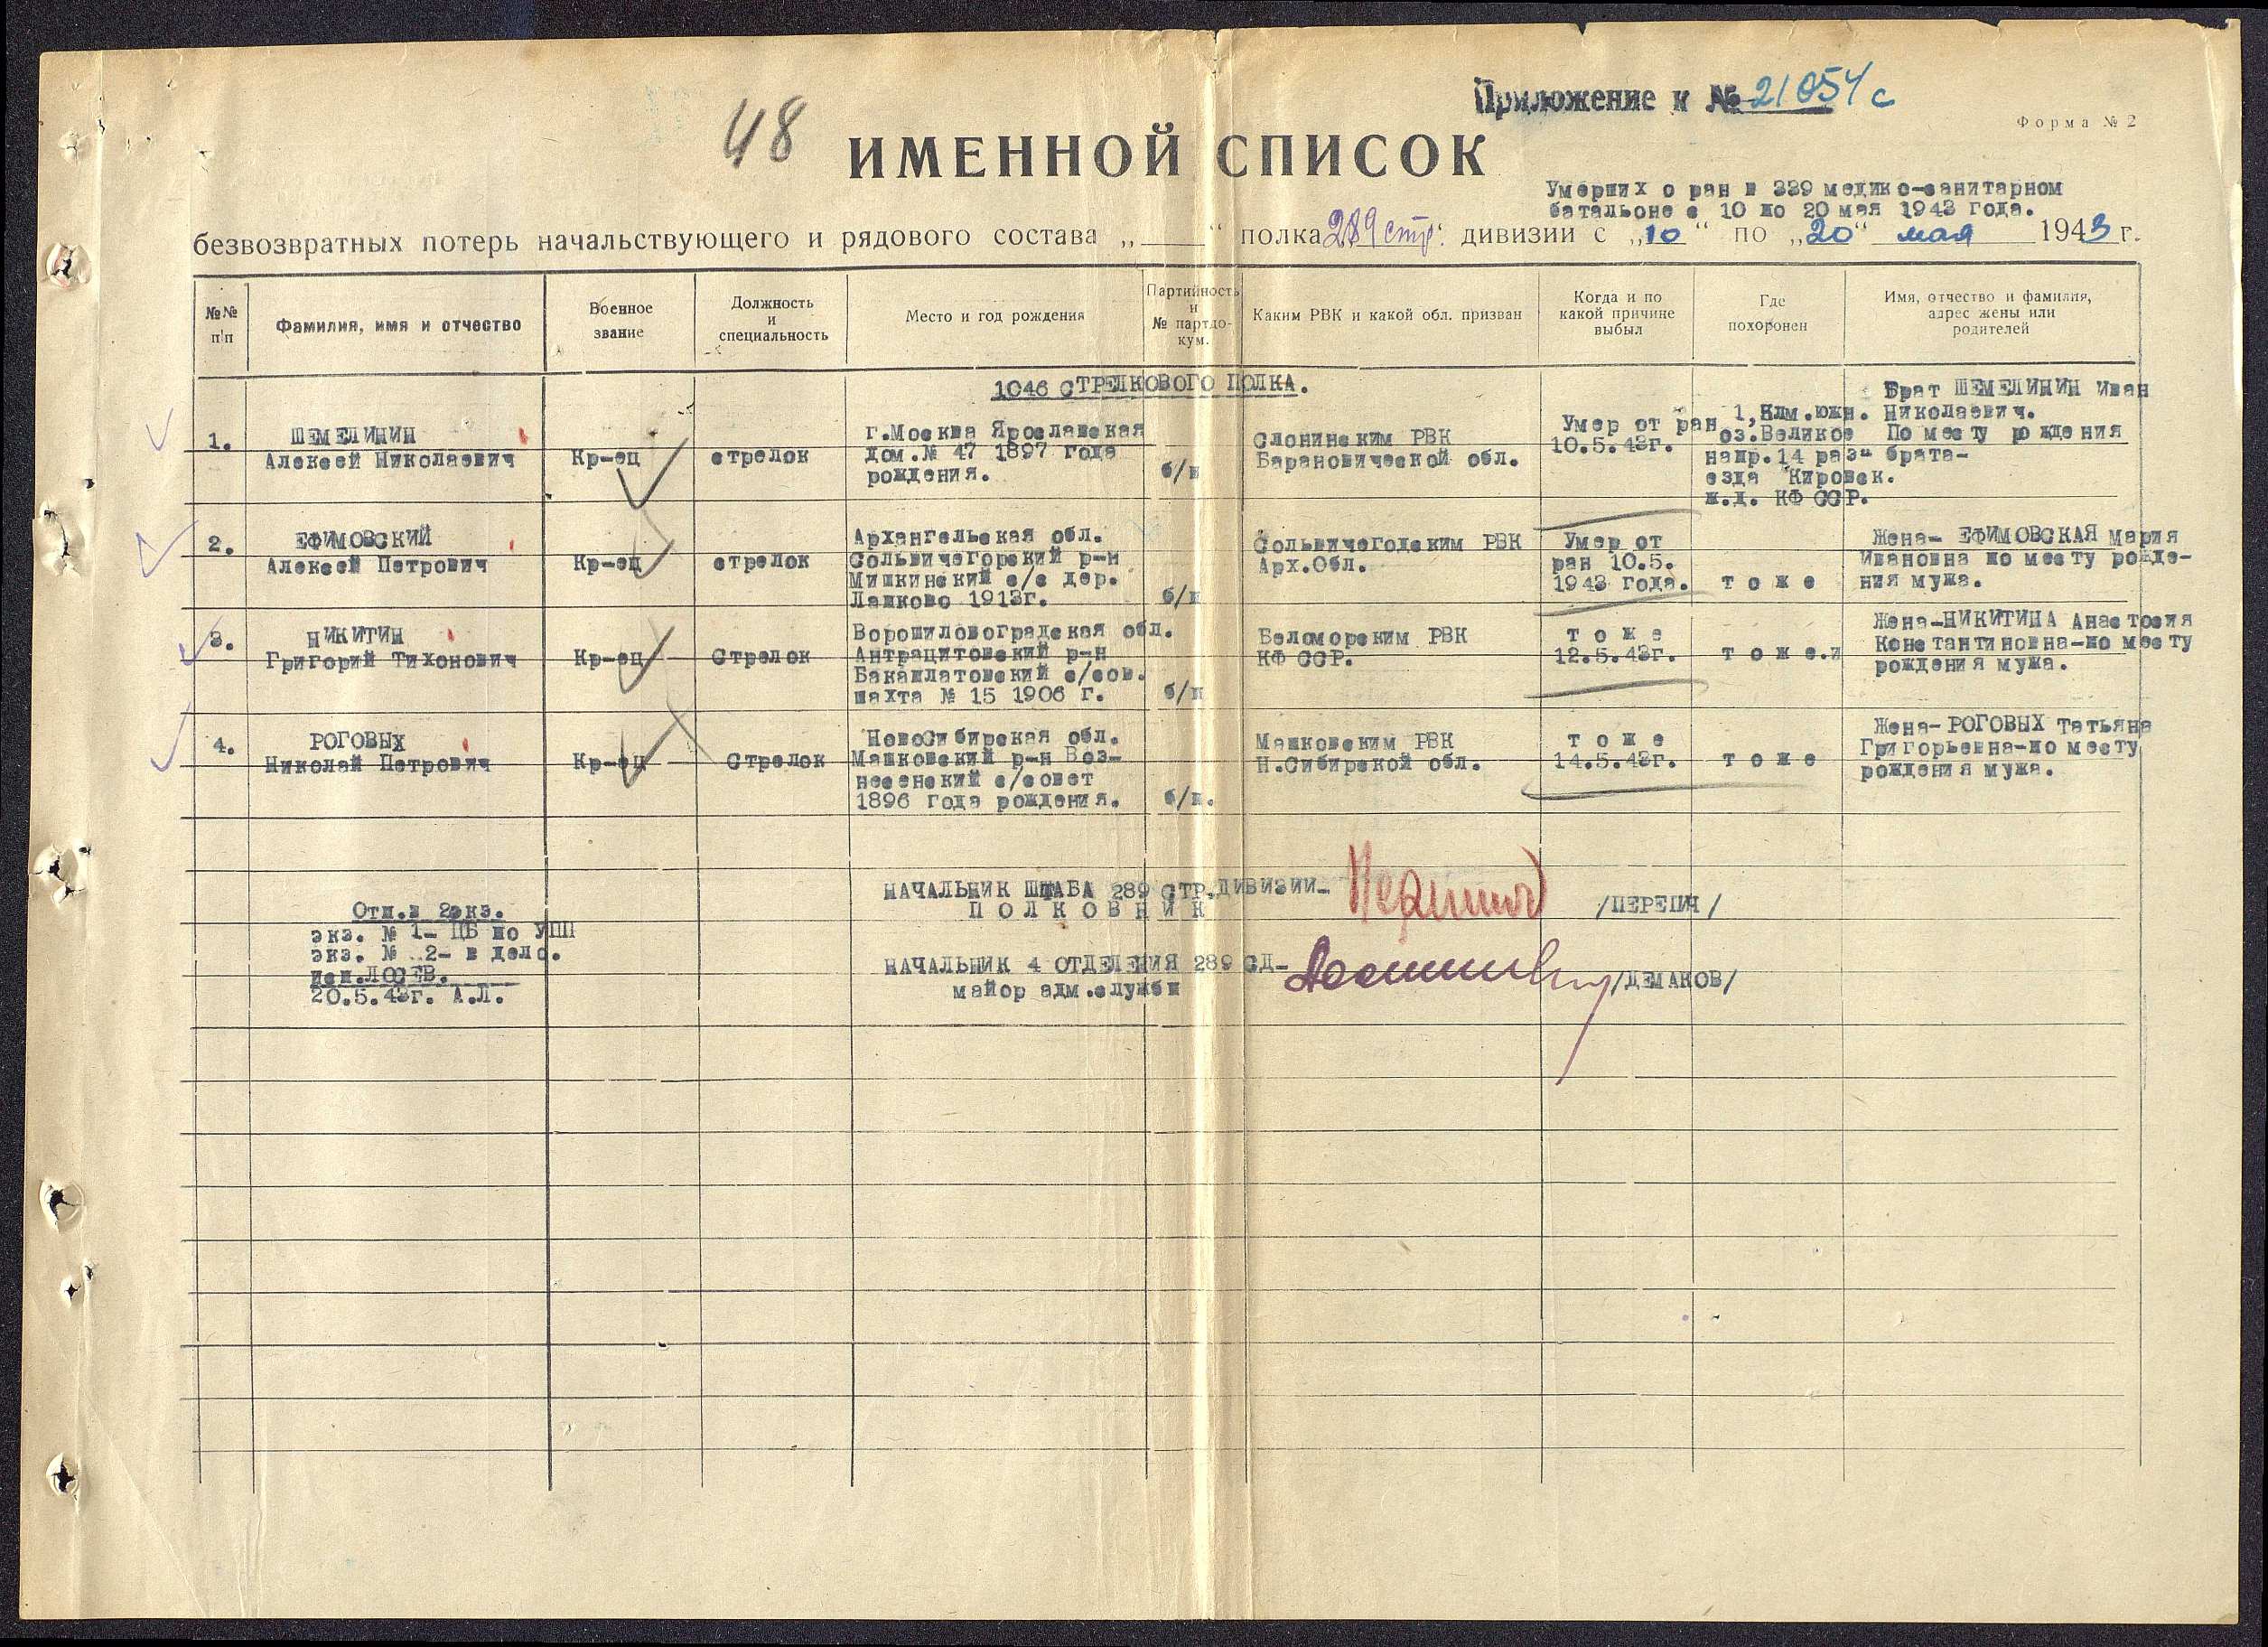 Приложение к № 21054с
48
Форма № 2
ИМЕННОЙ СПИСОК
Умерших о ран в 339 медико-санитарном
батальоне с 10 по 20 мая 1943 года.
безвозвратных потерь начальствующего и рядового состава „ “ полка 289 стр. дивизии с „10“ по „20“ мая 1943 г.
№№ п/п
Фамилия, имя и отчество
Военное звание
Должность и специальность
Место и год рождения
Партийность и № партдокум.
Каким РВК и какой обл. призван
Когда и по какой причине выбыл
Где похоронен
Имя, отчество и фамилия, адрес жены или родителей
1046 СТРЕЛКОВОГО ПОЛКА.
1.
ШЕМЕЛИНИН
Алексей Николаевич
Кр-ец
стрелок
г.Москва Ярославская
дом.№ 47 1897 года
рождения.
б/п
Слонинским РВК
Барановической обл.
Умер от ран
10.5.43г.
1,5км.южн.
оз.Великое
напр.14 раз-
езда Кировск.
ж.д. КФ ССР.
Брат ШЕМЕЛИНИН Иван
Николаевич.
По месту рождения
брата-
2.
ЕФИМОВСКИЙ
Алексей Петрович
Кр-ец
стрелок
Архангельская обл.
Сольвичегорский р-н
Мишкинский с/с дер.
Лашково 1913г.
б/п
Сольвичегодским РВК
Арх.Обл.
Умер от
ран 10.5.
1943 года.
т о ж е
Жена- ЕФИМОВСКАЯ Мария
Ивановна по месту рожде-
ния мужа.
3.
НИКИТИН
Григорий Тихонович
Кр-ец
Стрелок
Ворошиловоградская обл.
Антрацитовский р-н
Бакашлатовский с/сов.
шахта № 15 1906 г.
б/п
Беломорским РВК
КФ ССР.
т о ж е
12.5.43г.
т о ж е.и
Жена-НИКИТИНА Анастосия
Константиновна-по месту
рождения мужа.
4.
РОГОВЫХ
Николай Петрович
Кр-ец
Стрелок
НовоСибирская обл.
Машковский р-н Воз-
несенский с/совет
1896 года рождения.
б/п.
Машковским РВК
Н.Сибирской обл.
т о ж е
14.5.43г.
т о ж е
Жена-РОГОВЫХ Татьяна
Григорьевна-по месту
рождения мужа.
НАЧАЛЬНИК ШТАБА 289 СТР.ДИВИЗИИ-
П О Л К О В Н И К
/ПЕРЕПИЧ/
НАЧАЛЬНИК 4 ОТДЕЛЕНИЯ 289 СД-
майор адм.службы
/ДЕМАКОВ/
Отп.в 2экз.
экз. № 1- ЦБ по УПП
экз. № 2- в дело.
исп.ЛОСЕВ.
20.5.43г. А.Л.